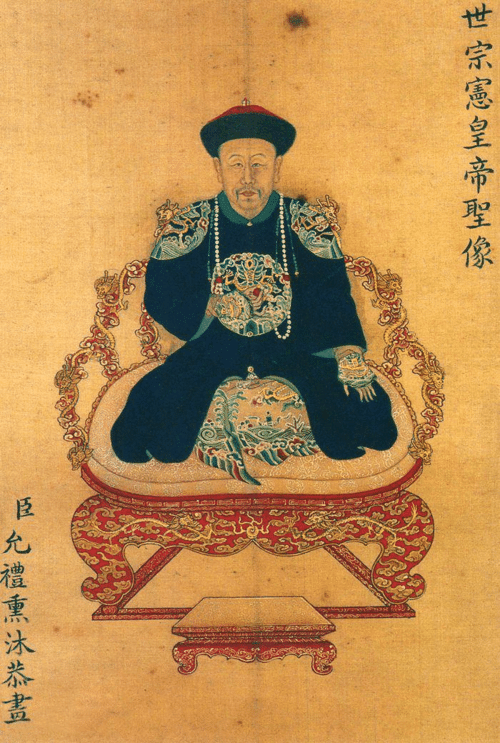 世宗憲皇帝聖像
臣允禮熏沐恭畫